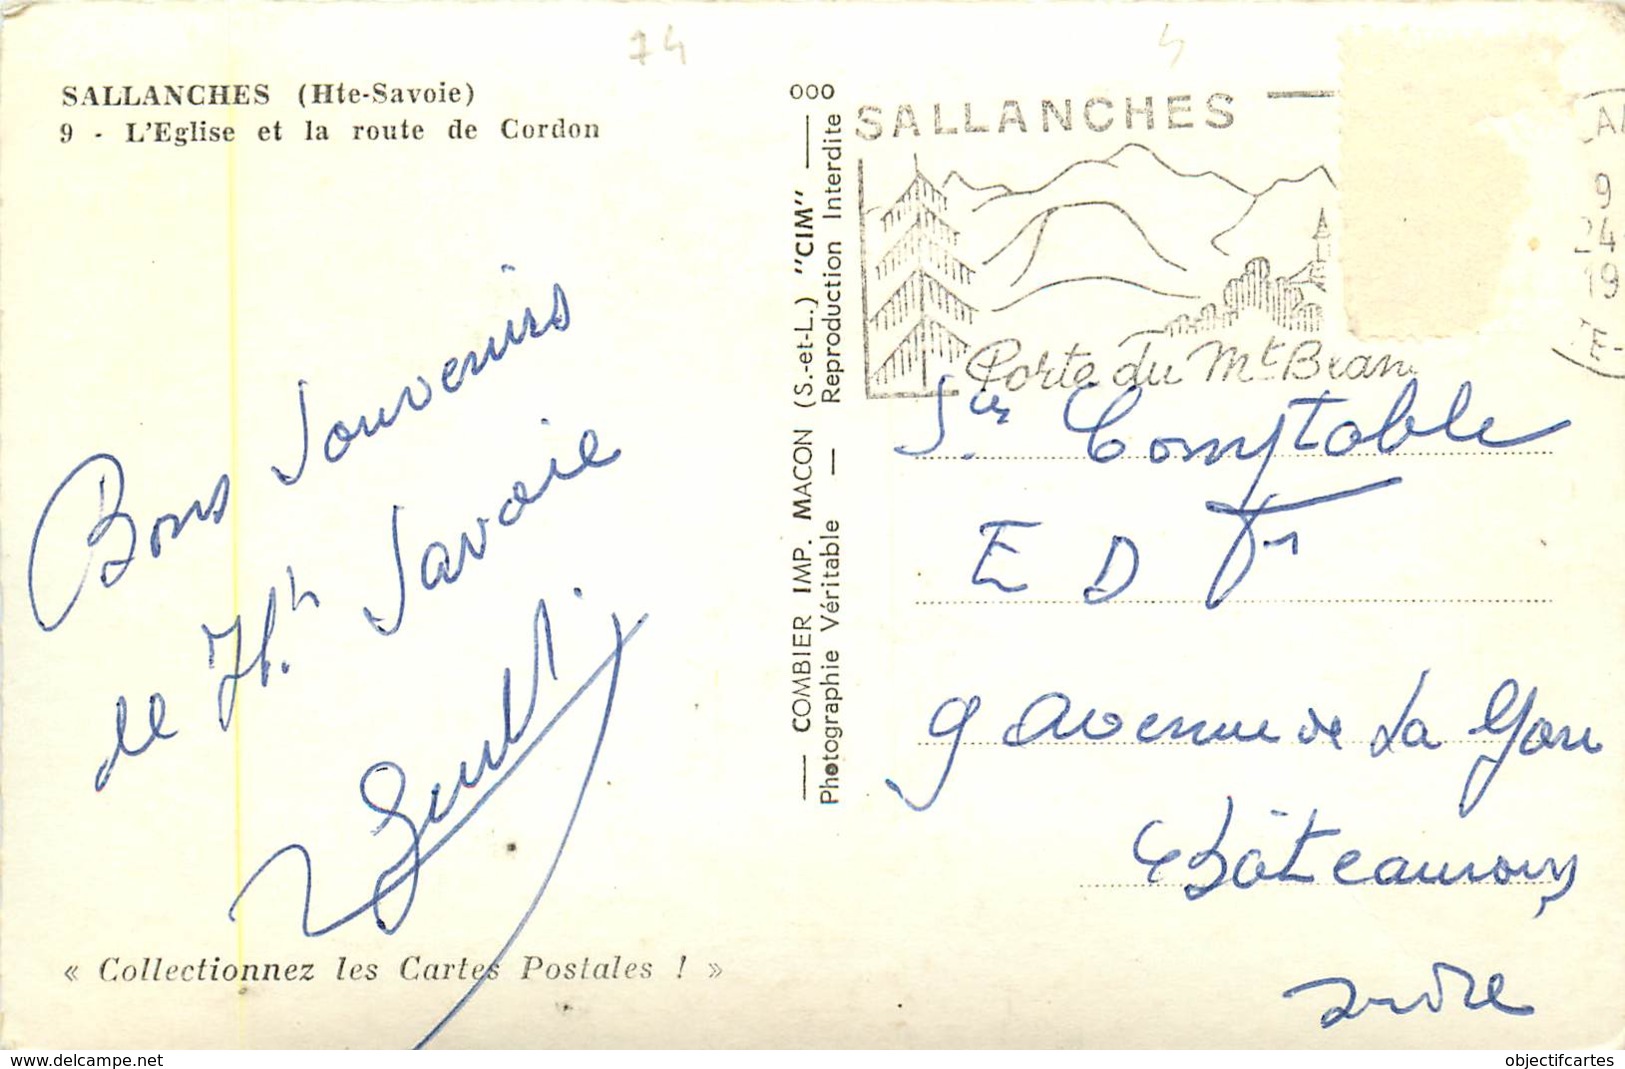 74
SALLANCHES (Hte-Savoie)
9 - L'Eglise et la route de Cordon
Bons Souvenirs
de Hte Savoie
« Collectionnez les Cartes Postales ! »
COMBIER IMP. MACON (S.-et-L.) "CIM"
Photographie Véritable — Reproduction Interdite
000
SALLANCHES
Porte du Mt Blan
9
24
19
TE-
Sce Comptable
E D F
9 avenue de La Gare
Châteauroux
Indre
www.delcampe.net
objectifcartes